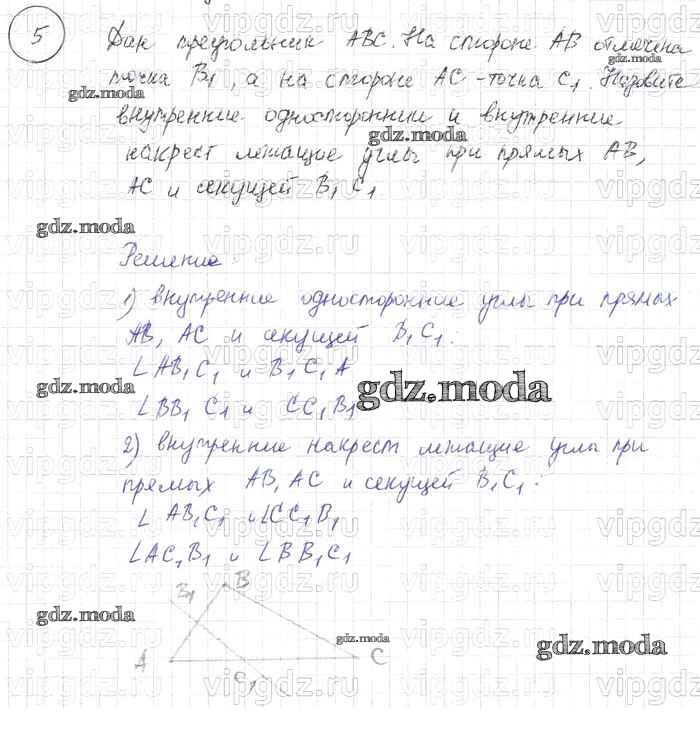 5
Дан треугольник ABC. На стороне AB отмечена
точка B1, а на стороне AC - точка C1. Назовите
внутренние односторонние и внутренние
накрест лежащие углы при прямых AB,
AC и секущей B1 C1
Решение
1) внутренние односторонние углы при прямых
AB, AC и секущей B1C1:
∠AB1C1 и B1C1A
∠BB1 C1 и CC1B1
2) внутренние накрест лежащие углы при
прямых AB, AC и секущей B1C1:
∠ AB1C1 и ∠CC1B1
∠AC1B1 и ∠BB1C1
B1 B
A C
C1
gdz.moda
vipgdz.ru